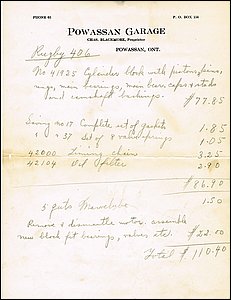 PHONE 61
P. O. BOX 156
POWASSAN GARAGE
CHAS. BLACKMORE, Proprietor
POWASSAN, ONT.
Rugby 406
No 41925 Cylinder block with pistons, pins,
rings, main bearings, main bear. caps & studs
and camshaft bushings. $77.85
no 17 Complete set of gaskets 1.85
" 37 Set of 8 valve springs 1.05
42000 Timing chain 3.25
42104 Oil filter 2.90
$86.90
5 qrts 1.50
Remove & dismantle motor, assemble
new block fit bearings, valves etc. $22.00
Total $110.40